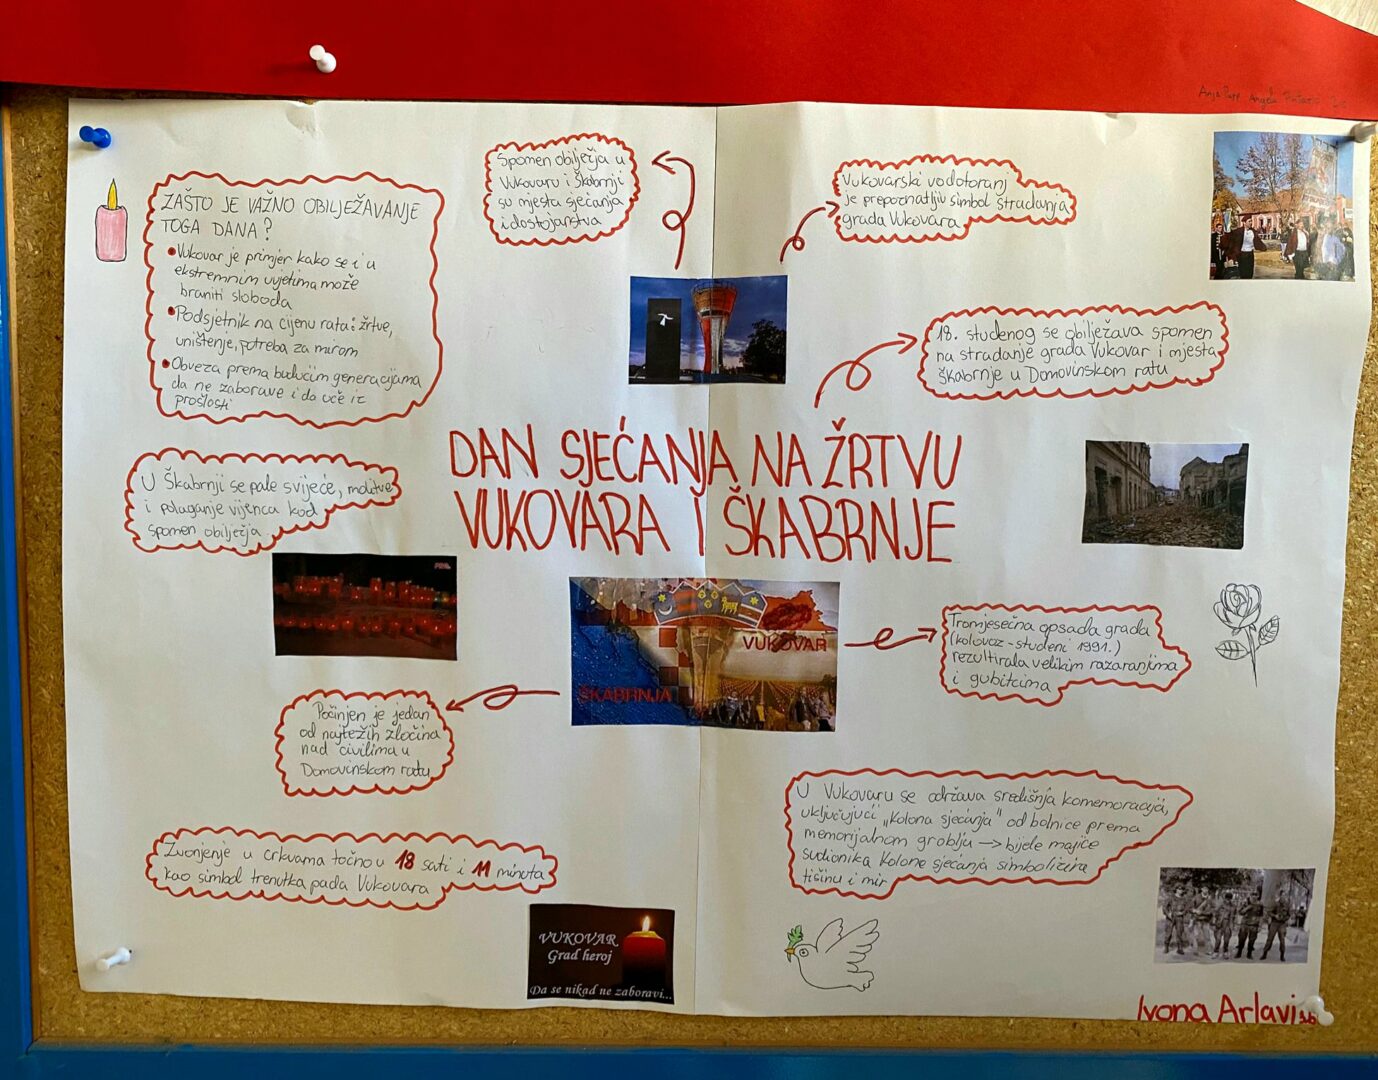 ZAŠTO JE VAŽNO OBILJEŽAVANJE
TOGA DANA?
Vukovar je primjer kako se i u
ekstremnim uvjetima može
braniti sloboda
Podsjetnik na cijenu rata: žrtve,
uništenje, potreba za mirom
Obveza prema budućim generacijama
da ne zaborave i da uče iz
prošlosti
Spomen obilježja u
Vukovaru i Škabrnji
su mjesta sjećanja
i dostojanstva
Vukovarski vodotoranj
je prepoznatljiv simbol stradanja
grada Vukovara
18. studenog se obilježava spomen
na stradanje grada Vukovar i mjesta
Škabrnje u Domovinskom ratu
DAN SJEĆANJA NA ŽRTVU
VUKOVARA I ŠKABRNJE
U Škabrnji se pale svijeće, molitve
i polaganje vijenca kod
spomen obilježja
VUKOVAR
ŠKABRNJA
Tromjesečna opsada grada
(kolovoz-studeni 1991.)
rezultirala velikim razaranjima
i gubitcima
Počinjen je jedan
od najtežih zločina
nad civilima u
Domovinskom ratu
U Vukovaru se održava središnja komemoracija,
uključujući „Kolona sjećanja" od bolnice prema
memorijalnom groblju → bijele majice
sudionika Kolone sjećanja simbolizira
tišinu i mir
Zvonjenje u crkvama točno u 18 sati i 11 minuta
kao simbol trenutka pada Vukovara
VUKOVAR
Grad heroj
Da se nikad ne zaboravi...
Ivona Arlavi